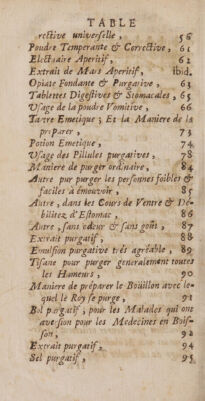 TABLE
rective universelle, 58
Poudre Temperante & Corrective, 61
Electuaire Aperitif, 62
Extrait de Mars Aperitif, ibid.
Opiate Fondante & Purgative, 63
Tablettes Digestives & Stomacales, 65
Usage de la poudre Vomitive, 66
Tartre Emetique; Et la Maniere de la
preparer, 73
Potion Emetique, 74
Usage des Pillules purgatives, 78
Maniere de purger ordinaire, 84
Autre pur purger les personnes foibles &
faciles à émouvoir, 85
Autre, dans les Cours de Ventre & De-
bilitez d'Estomac, 86
Autre, sans odeur & sans goût, 87
Extrait purgatif, 88
Emulsion purgative très agréable, 89
Tisane pour purger generalement toutes
les Humeurs, 90
Maniere de préparer le Boüillon avec le-
quel le Roy se purge, 91
Bol purgatif, pour les Malades qui ont
aversion pour les Medecines en Bois-
son, 92
Extrait purgatif, 94
Sel purgatif, 95